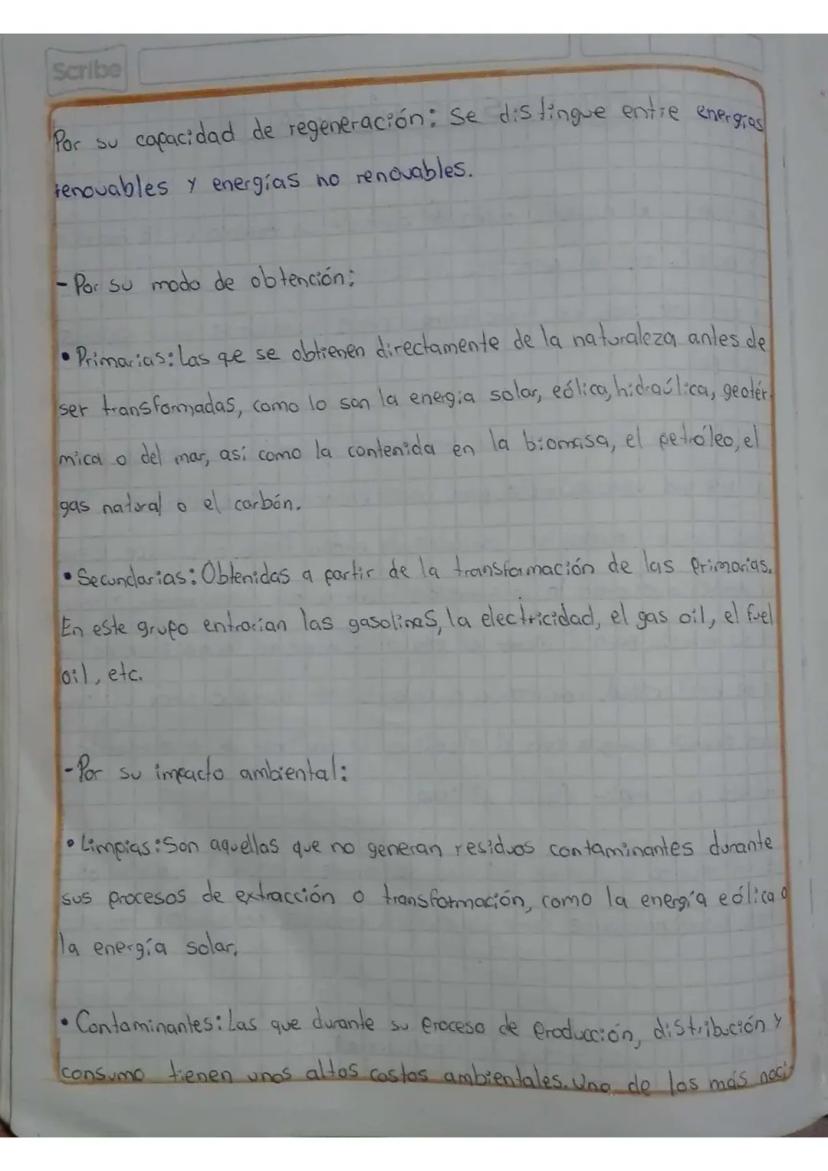 Scribe
Por su capacidad de regeneración: Se distingue entre energías
renovables y energías no renovables.
- Por su modo de obtención:
• Primarias: Las qe se obtienen directamente de la naturaleza antes de
ser transformadas, como lo son la energia solar, eólica, hidraúlica, geotér
mica o del mar, así como la contenida en la biomasa, el petróleo, el
gas natural o el carbón.
• Secundarias: Obtenidas a partir de la transformación de las primarias.
En este grupo entrarian las gasolinas, la electricidad, el gas oil, el fuel
oil, etc.
- Por su impacto ambiental:
• Limpias: Son aquellas que no generan residuos contaminantes durante
sus procesos de extracción o transformación, como la energía eólica o
la energía solar.
• Contaminantes: Las que durante su proceso de producción, distribución y
consumo tienen unos altos costos ambientales. Uno de los más noci